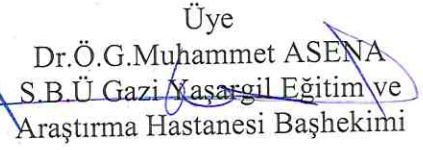 Üye
Dr.Ö.G.Muhammet ASENA
S.B.Ü Gazi Yaşargil Eğitim ve
Araştırma Hastanesi Başhekimi